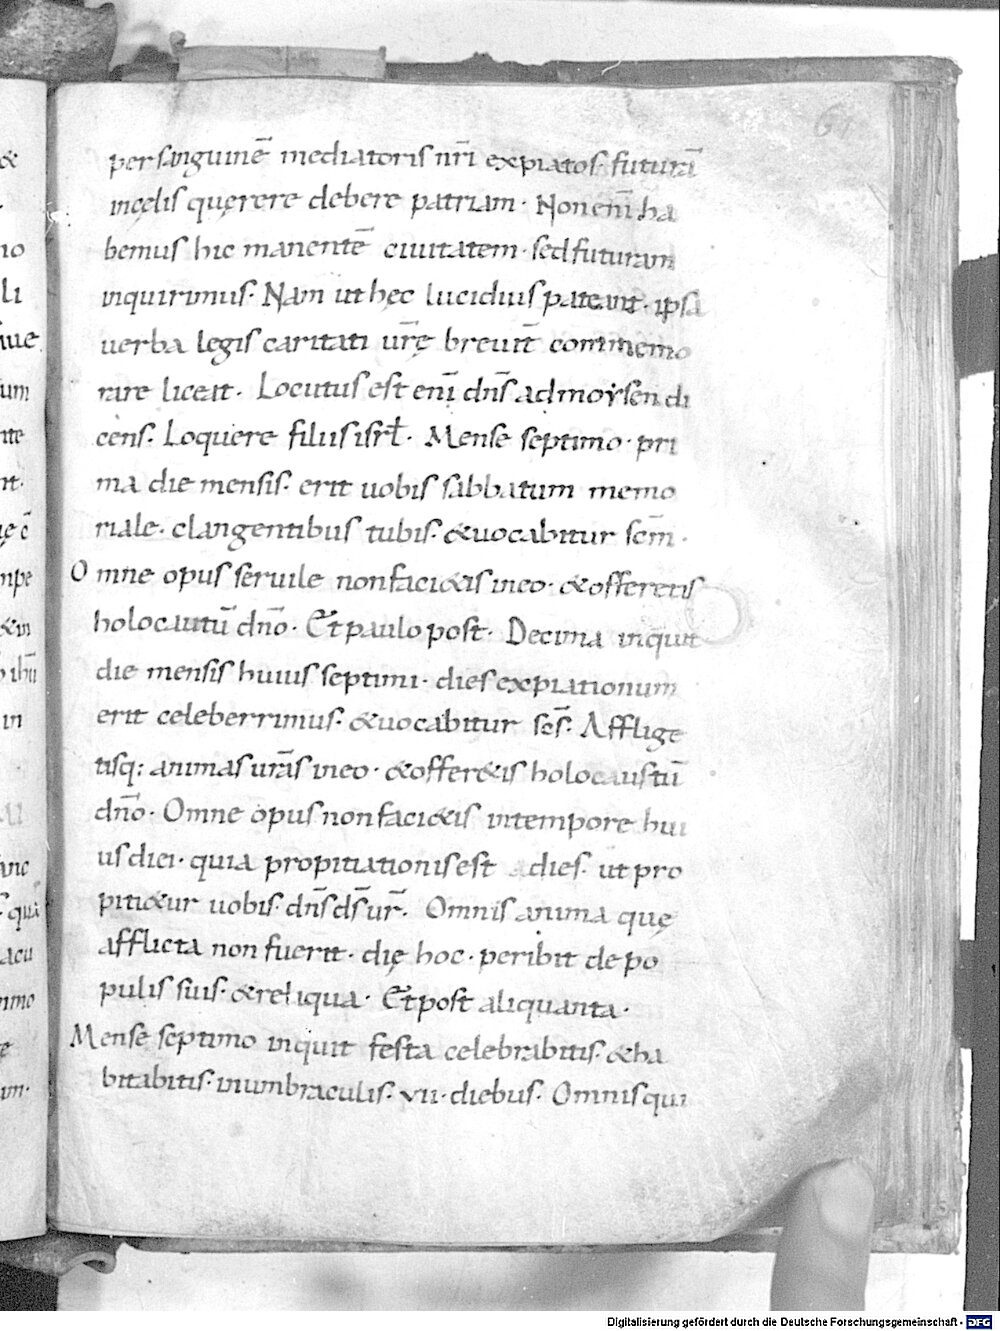 61
per sanguinē mediatoris nr̄i expiatos· futurā
in cęlis quęrere debere patriam· Non enī ha
bemus hic manentē ciuitatem· sed futuram
inquirimus· Nam ut hęc lucidius pateant· ipsa
uerba legis caritati ur̄ę breuit̄ commemo
rare liceat· Locutus est enī dn̄s ad moẏsen di
cens· Loquere filiis isrł· Mense septimo· pri
ma die mensis· erit uobis sabbatum memo
riale· clangentibus tubis· &uocabitur sc̄m·
Omne opus seruile non faci&is in eo· &offeretis
holocautū dn̄o· Et paulo post· Decima inquit
die mensis huius septimi· dies expiationum
erit celeberrimus· &uocabitur sc̄s· Afflige
tisq: animas ur̄as in eo· &offer&is holocaustū
dn̄o· Omne opus non faci&is in tempore hui
us diei· quia propitiationis est dies· ut pro
piti&ur uobis· dn̄s ds̄ ur̄· Omnis anima quę
afflicta non fuerit· die hoc· peribit de po
pulis suis· &reliqua· Et post aliquanta·
Mense septimo inquit festa celebrabitis· &ha
bitabitis· in umbraculis· vii· diebus· Omnis qui
Digitalisierung gefördert durch die Deutsche Forschungsgemeinschaft - DFG